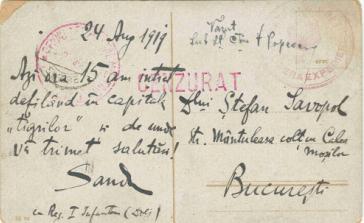 24 Aug 1919
Azi ora 15 am intrat
defilând in capitala
"Tigrilor" si de unde
vă trimet salutări!
Sandu
Reg. I Infanterie (Dolj)
Văzut
CENZURAT
Dlui Ștefan Savopol
Str. Mântuleasa colt cu Calea
Moșilor
București